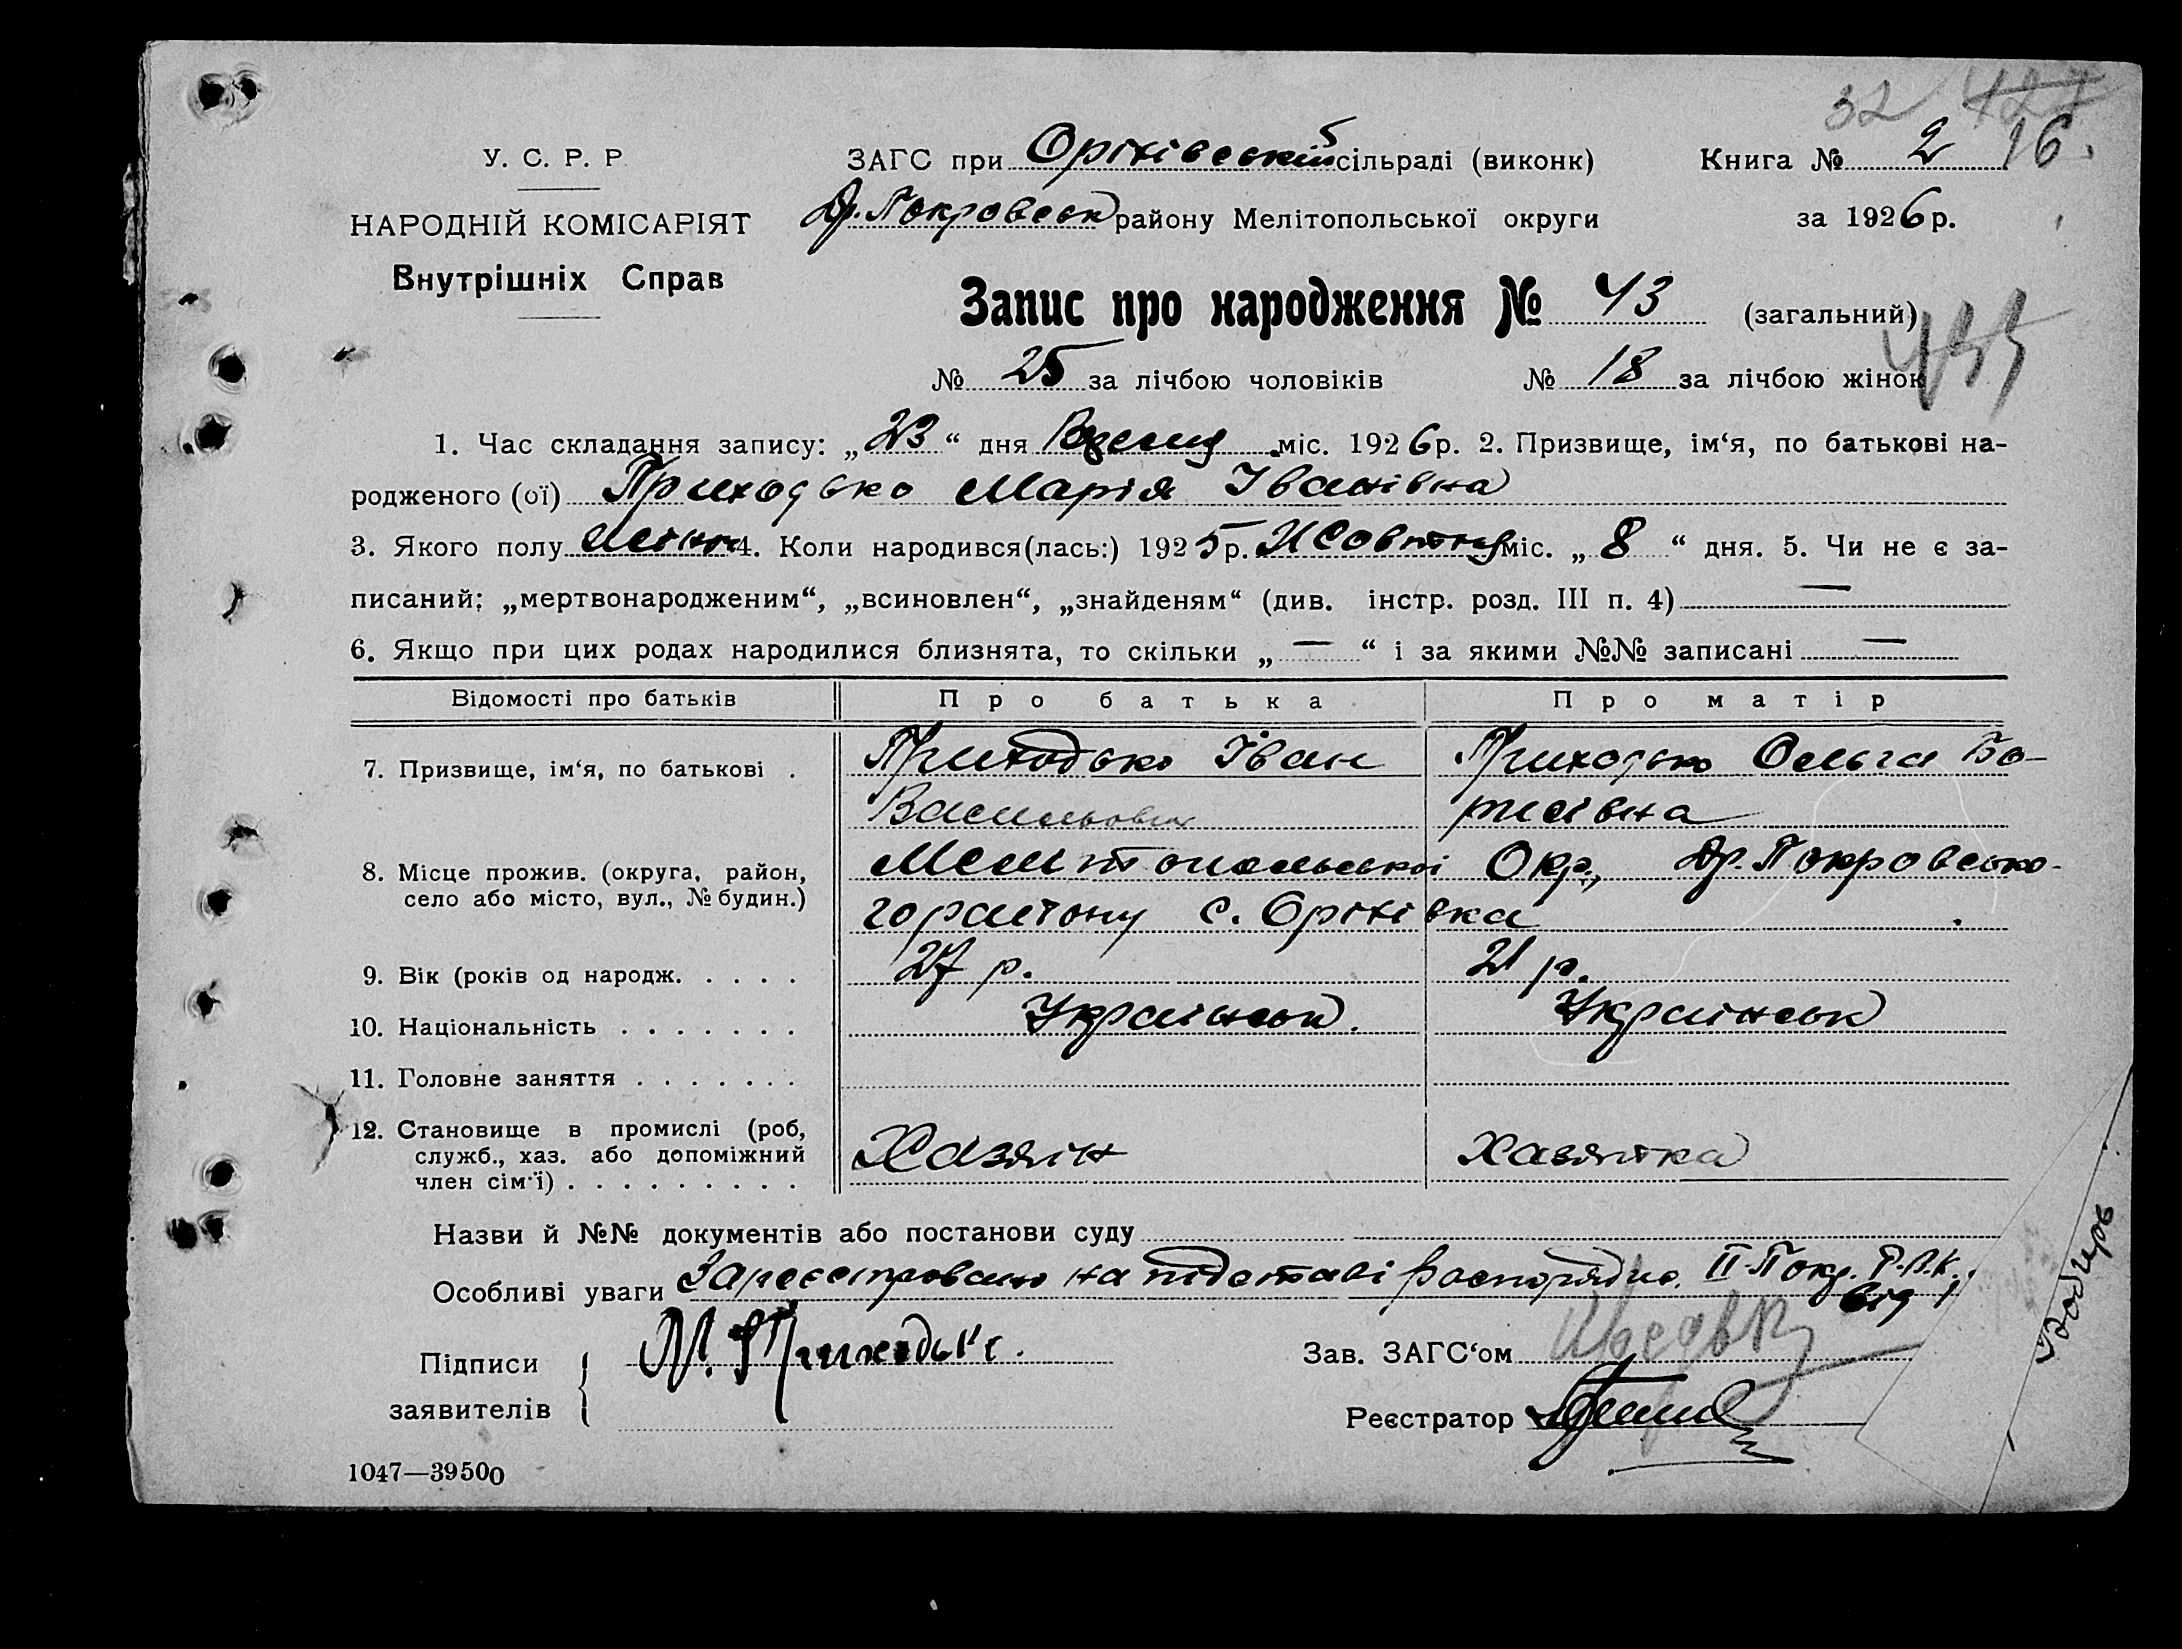 32 427
У. С. Р. Р.
ЗАГС при Оріхівській сільраді (виконк)
Книга № 2 16.
НАРОДНІЙ КОМІСАРІЯТ
Др. Покровськ району Мелітопольської округи
за 1926 р.
Внутрішніх Справ
Запис про народження № 43 (загальний)
№ 25 за лічбою чоловіків № 18 за лічбою жінок
1. Час складання запису: „23“ дня міс. 1926 р. 2. Призвище, ім‘я, по батькові на-
родженого (ої) Приходько Марія Іванівна
3. Якого полу 4. Коли народився(лась:) 1925 р. Жовтня міс. „8“ дня. 5. Чи не є за-
писаний: „мертвонародженим“, „всиновлен“, „знайденям“ (див. інстр. розд. III п. 4) —
6. Якщо при цих родах народилися близнята, то скільки „—“ і за якими №№ записані —
Відомості про батьків Про батька Про матір
7. Призвище, ім‘я, по батькові . Приходько Іван Приходько Ольга Бо-
Васильович рисівна
8. Місце прожив. (округа, район, Мелітопольської Окр., Др. Покровсько-
село або місто, вул., № будин.) го району с. Оріхівка
9. Вік (років од народж. . . . . 27 р. 21 р.
10. Національність . . . . . . . Українськ. Українськ
11. Головне заняття . . . . . . .
12. Становище в промислі (роб, Хазяїн Хазяйка
служб., хаз. або допоміжний
член сім‘ї) . . . . . . . . .
Назви й №№ документів або постанови суду
Особливі уваги Зареєстровано на підставі распорядис. II-Покр. Р.В.К.
від
Підписи М. Приходько.
Зав. ЗАГС‘ом
заявителів
Реєстратор
1047—39500